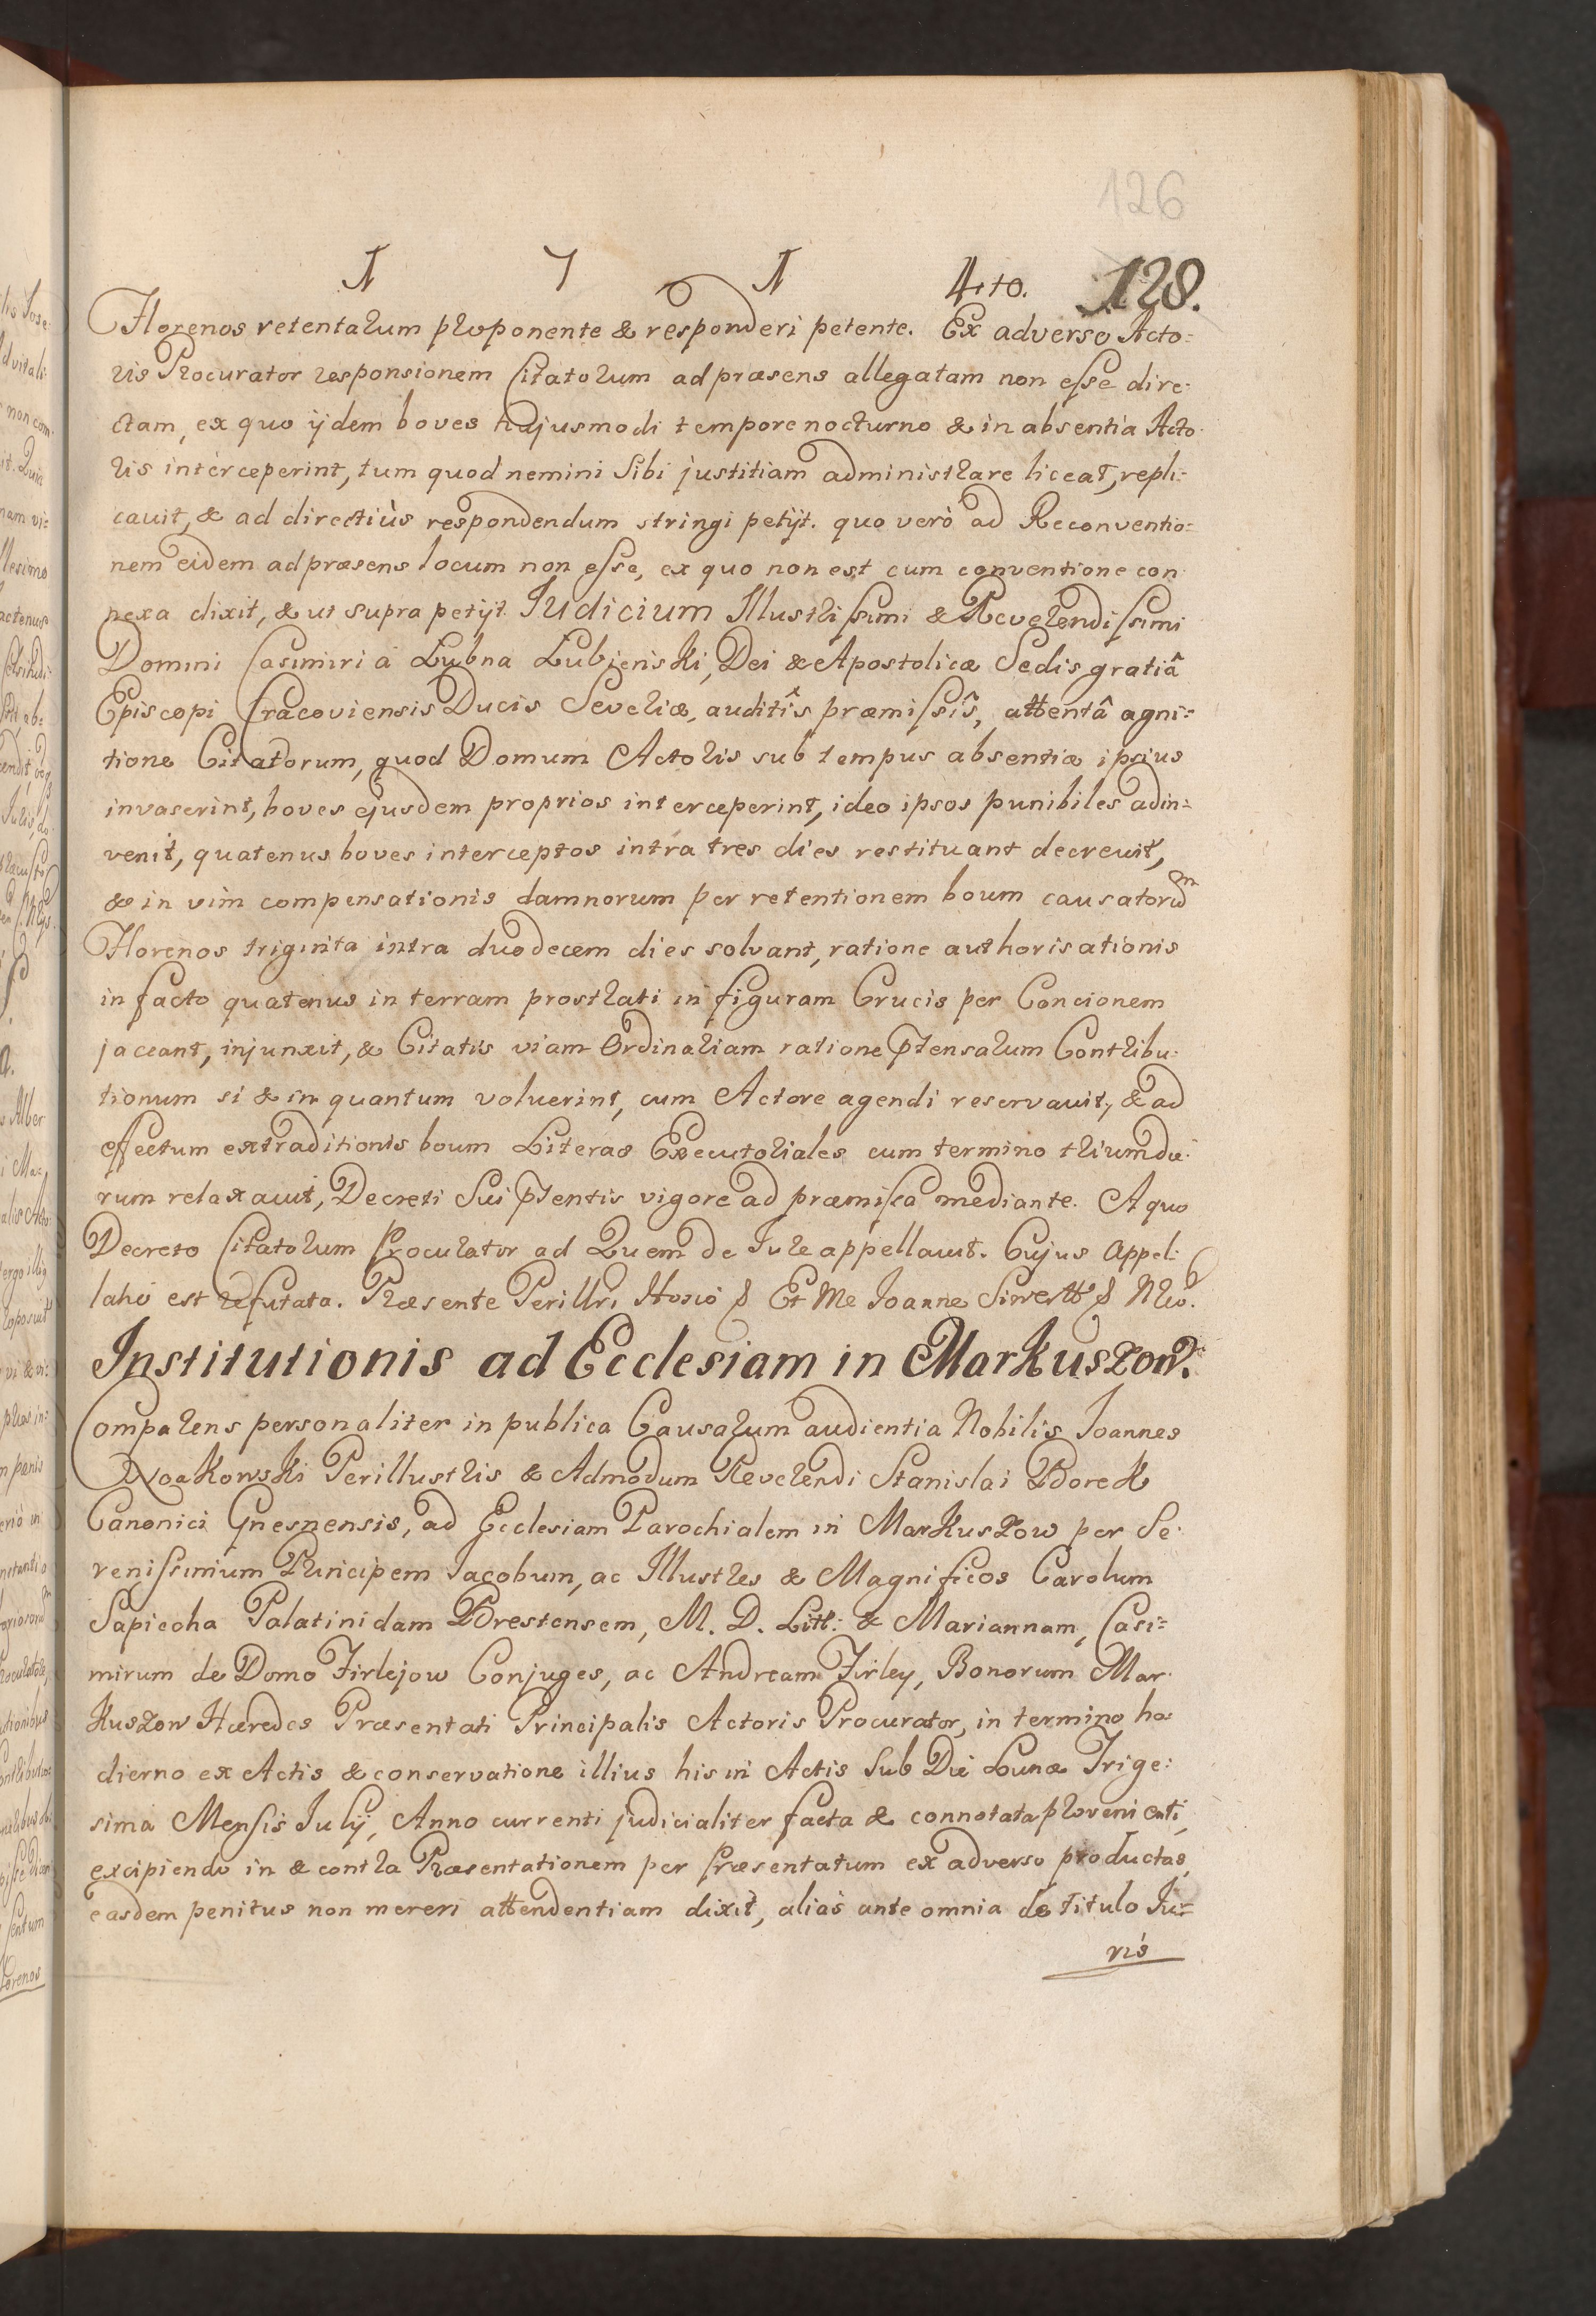 126
1 7 1 4to. 128.
Florenos retentarum proponente & responderi petente. Ex adverso Acto=
ris Procurator responsionem Citatorum ad præsens allegatam non esse dire=
ctam, ex quo ijdem boves hujusmodi tempore nocturno & in absentia Acto=
ris interceperint, tum quod nemini Sibi justitiam administrare liceat, repli=
cauit, & ad directiùs respondendum stringi petijt. quo verò ad Reconventio=
nem eidem ad præsens locum non esse, ex quo non est cum conventione con
nexa dixit, & ut supra petijt. Judicium Illustrissimi & Reverendissimi
Domini Casimiri à Łubna Łubieński, Dei & Apostolicæ Sedis gratiâ
Episcopi Cracoviensis Ducis Severiæ, auditîs præmissîs, attentâ agni=
tione Citatorum, quod Domum Actoris sub tempus absentiæ ipsius
invaserint, boves ejusdem proprios interceperint, ideo ipsos punibiles adin=
venit, quatenus boves interceptos intra tres dies restituant decreuit,
& in vim compensationis damnorum per retentionem boum causatorum
Florenos triginta intra duodecem dies solvant, ratione authorisationis
in facto quatenus in terram prostrati in figuram Crucis per Concionem
jaceant, injunxit, & Citatis viam Ordinariam ratione ptensarum Contribu=
tionum si & in quantum voluerint, cum Actore agendi reservauit, & ad
effectum extraditionis boum Literas Executoriales cum termino trium die=
rum relaxauit, Decreti Sui pntentis vigore ad præmissa mediante. A quo
Decreto Citatorum Procurator ad Quem de Jure appellauit. Cujus Appel=
latio est refutata. Præsente Perillri Hosio & Et Me Joanne Siwertt & Nrio.
Institutionis ad Ecclesiam in Markuszow.
Comparens personaliter in publica Causarum audientia Nobilis Joannes
Noakowski Perillustris & Admodum Reverendi Stanislai Borek
Canonici Gnesnensis, ad Ecclesiam Parochialem in Markuszow per Se=
renissimum Principem Jacobum, ac Illustres & Magnificos Carolum
Sapieha Palatinidam Brestensem, M. D. Litt: & Mariannam, Casi=
mirum de Domo Firlejow Conjuges, ac Andream Firley, Bonorum Mar=
kuszow Hæredes Præsentati Principalis Actoris Procurator, in termino ho=
dierno ex Actis & conservatione illius his in Actis Sub Die Lunæ Trige=
sima Mensis Julij, Anno currenti judicialiter facta & connotata provenienti,
excipiendo in & contra Præsentationem per Præsentatum ex adverso productas,
easdem penitus non mereri attendentiam dixit, alias ante omnia de Titulo Ju=
ris